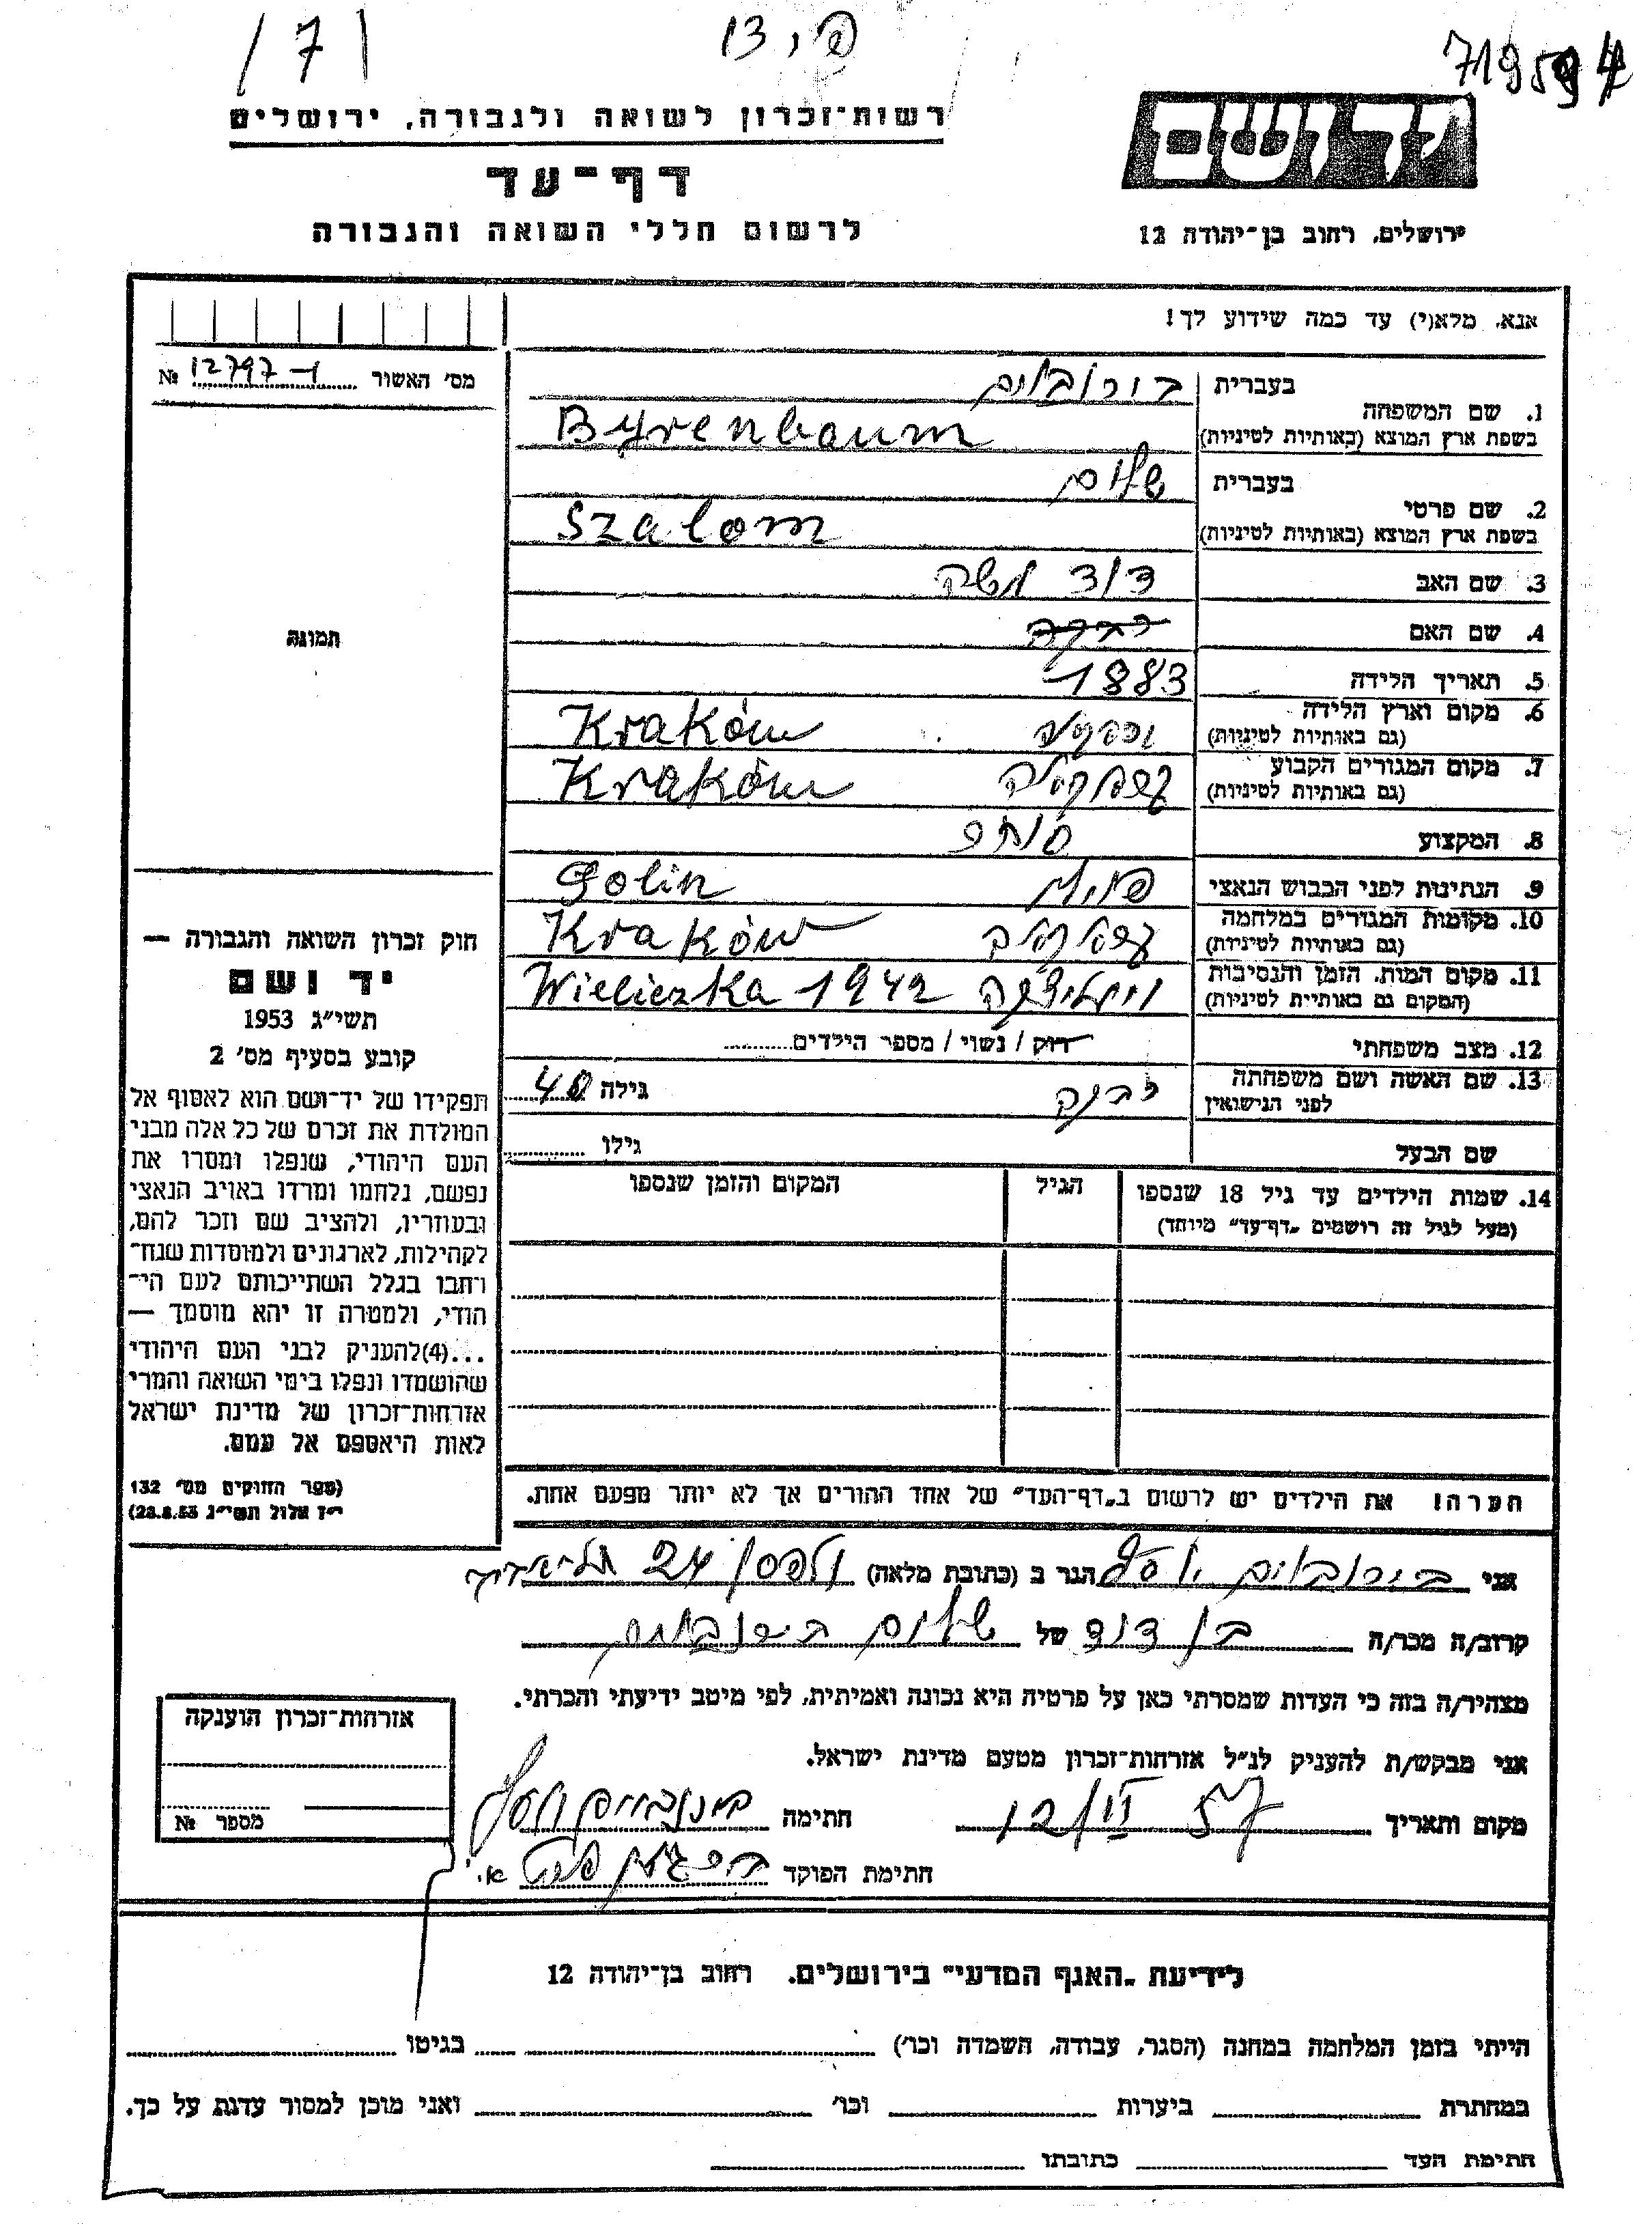 / 7 |
13
719594
רשות־זכרון לשואה ולגבורה, ירושלים
דף־עד
לרשום חללי השואה והגבורה
יד ושם
ירושלים, רחוב בן־יהודה 12
אנא, מלא(י) עד כמה שידוע לך!
מס' האשור № 12797-1
1. שם המשפחה
בעברית
בשפת ארץ המוצא (באותיות לטיניות) Byrenbaum
2. שם פרטי
בעברית שלום
בשפת ארץ המוצא (באותיות לטיניות) Szalom
3. שם האב דוד משה
4. שם האם רבקה
5. תאריך הלידה 1883
6. מקום וארץ הלידה
(גם באותיות לטיניות) Kraków
7. מקום המגורים הקבוע
(גם באותיות לטיניות) Kraków
8. המקצוע סוחר
9. הנתינות לפני הכבוש הנאצי פולין Polin
10. מקומות המגורים במלחמה
(גם באותיות לטיניות) Kraków
11. מקום המות, הזמן והנסיבות
(המקום גם באותיות לטיניות) ויאליצקה Wieliczka 1942
12. מצב משפחתי רוק / נשוי / מספר הילדים
13. שם האשה ושם משפחתה
לפני הנישואין גילה 40
שם הבעל גילו
14. שמות הילדים עד גיל 18 שנספו
(מעל לגיל זה רושמים „דף־עד" מיוחד)
הגיל
המקום והזמן שנספו
הערה! את הילדים יש לרשום ב„דף־העד" של אחד ההורים אך לא יותר מפעם אחת.
תמונה
חוק זכרון השואה והגבורה —
יד ושם
תשי"ג 1953
קובע בסעיף מס' 2
תפקידו של יד־ושם הוא לאסוף אל
המולדת את זכרם של כל אלה מבני
העם היהודי, שנפלו ומסרו את
נפשם, נלחמו ומרדו באויב הנאצי
ובעוזריו, ולהציב שם וזכר להם,
לקהילות, לארגונים ולמוסדות שנח־
רחבו בגלל השתייכותם לעם הי־
הודי, ולמטרה זו יהא מוסמך —
...(4)להעניק לבני העם היהודי
שהושמדו ונפלו בימי השואה והמרי
אזרחות־זכרון של מדינת ישראל
לאות היאספם אל עמם.
(ספר החוקים מס' 132
י"ז אלול תשי"ג 28.8.53)
אני בירנבוים יוסף הגר ב (כתובת מלאה) 24 תל־אביב
קרוב/ה מכר/ה בן דוד של שלום בירנבוים
מצהיר/ה בזה כי העדות שמסרתי כאן על פרטיה היא נכונה ואמיתית, לפי מיטב ידיעתי והכרתי.
אני מבקש/ת להעניק לנ"ל אזרחות־זכרון מטעם מדינת ישראל.
מקום ותאריך 12/VI 57 חתימה בירנבוים יוסף
חתימת הפוקד
אזרחות־זכרון הוענקה
מספר №
לידיעת „האגף המדעי" בירושלים. רחוב בן־יהודה 12
הייתי בזמן המלחמה במחנה (הסגר, עבודה, השמדה וכו') בגיטו
במחתרת ביערות וכו' ואני מוכן למסור עדות על כך.
חתימת העד כתובתו